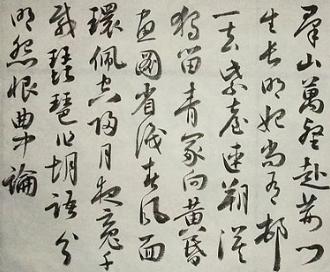 羣山萬壑赴荊門
生長明妃尚有村
一去紫臺連朔漠
獨留青冢向黃昏
畫圖省識春風面
環佩空歸月夜魂千
載琵琶作胡語分
明怨恨曲中論